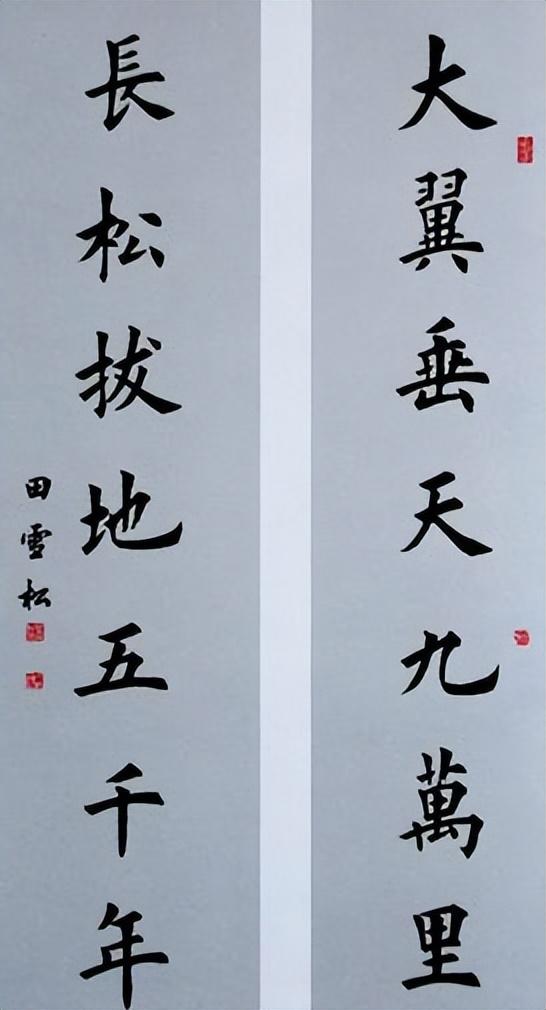 大翼垂天九萬里
長松拔地五千年
田雪松